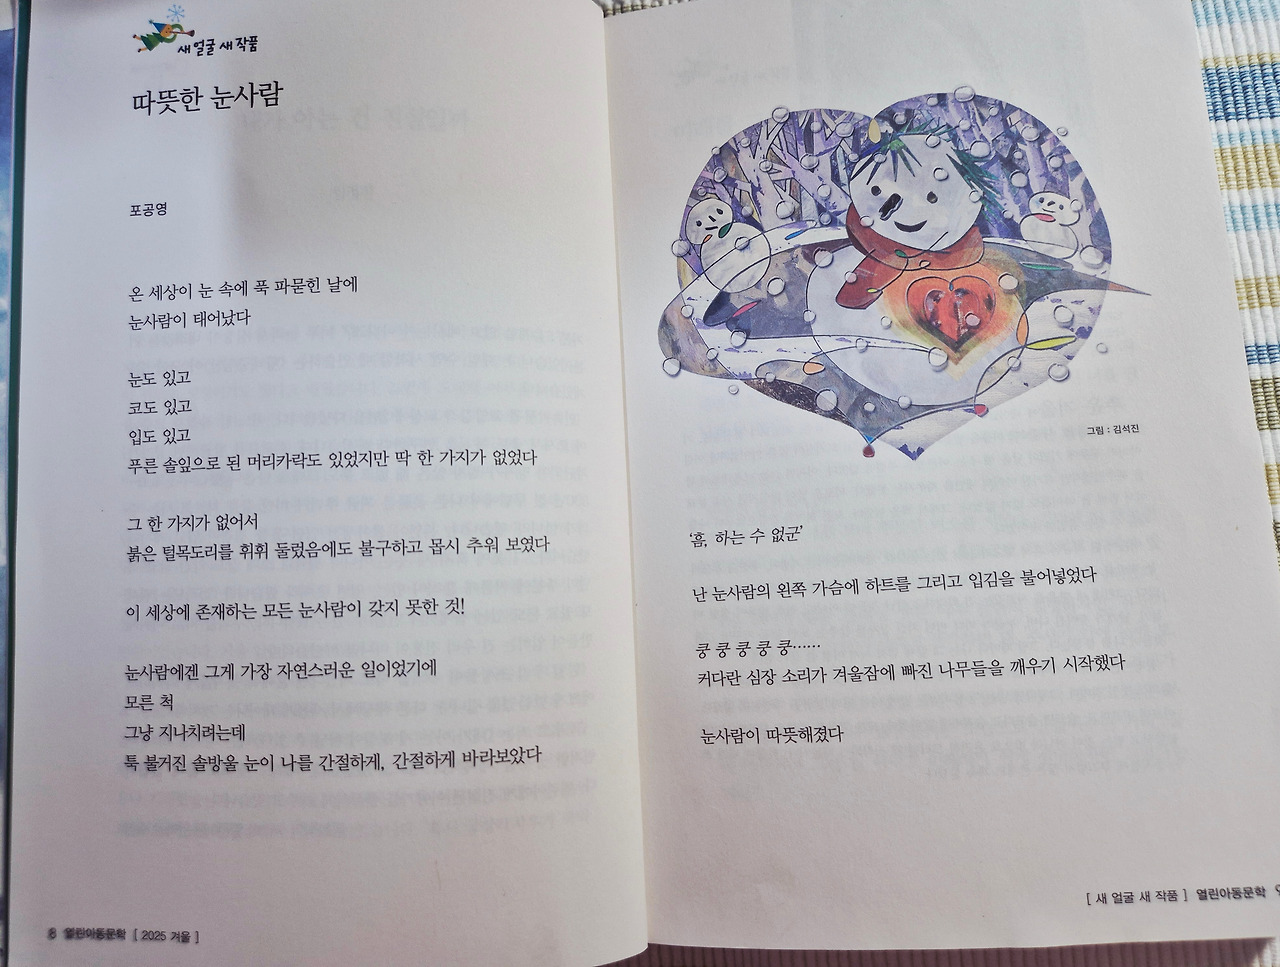 새 얼굴 새 작품
따뜻한 눈사람
포공영
온 세상이 눈 속에 푹 파묻힌 날에
눈사람이 태어났다
눈도 있고
코도 있고
입도 있고
푸른 솔잎으로 된 머리카락도 있었지만 딱 한 가지가 없었다
그 한 가지가 없어서
붉은 털목도리를 휘휘 둘렀음에도 불구하고 몹시 추워 보였다
이 세상에 존재하는 모든 눈사람이 갖지 못한 것!
눈사람에겐 그게 가장 자연스러운 일이었기에
모른 척
그냥 지나치려는데
툭 불거진 솔방울 눈이 나를 간절하게, 간절하게 바라보았다
8 열린아동문학 [ 2025 겨울 ]
그림 : 김석진
‘흠, 하는 수 없군’
난 눈사람의 왼쪽 가슴에 하트를 그리고 입김을 불어넣었다
쿵 쿵 쿵 쿵 쿵……
커다란 심장 소리가 겨울잠에 빠진 나무들을 깨우기 시작했다
눈사람이 따뜻해졌다
[ 새 얼굴 새 작품 ] 열린아동문학